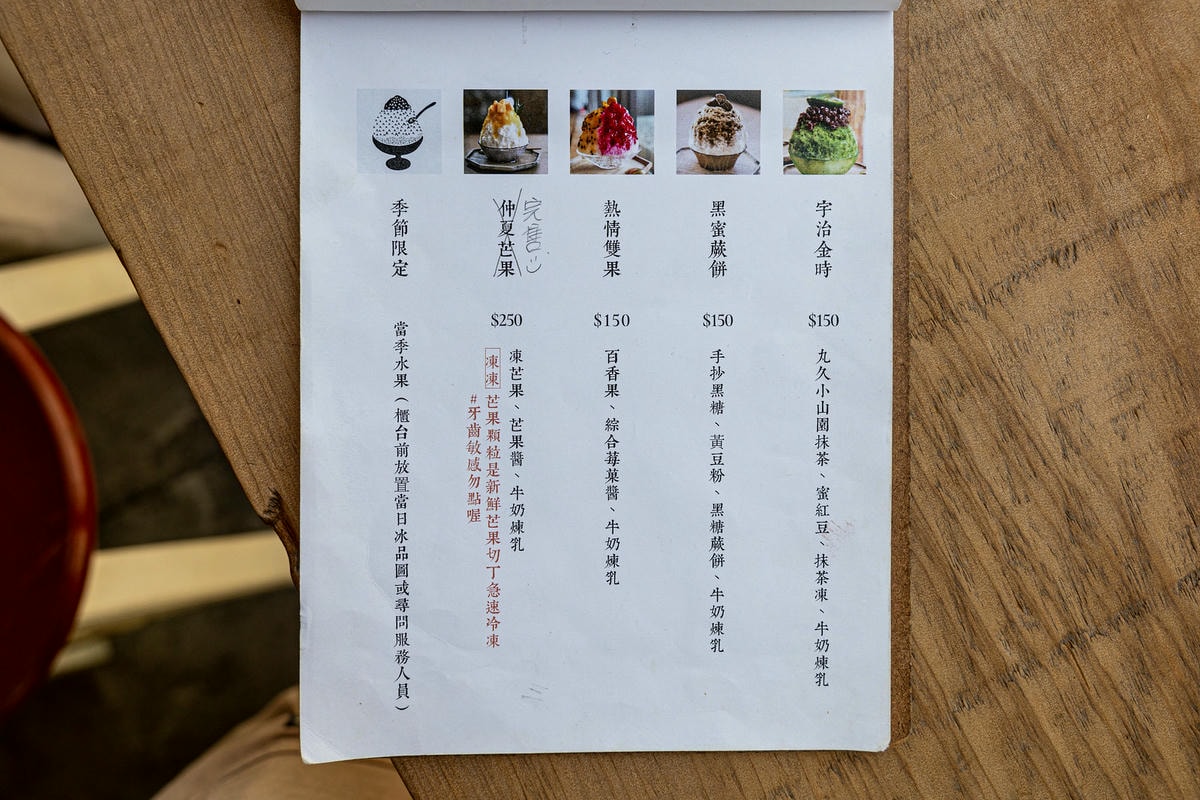 宇治金時
$150
丸久小山園抹茶、蜜紅豆、抹茶凍、牛奶煉乳
黑蜜蕨餅
$150
手抄黑糖、黃豆粉、黑糖蕨餅、牛奶煉乳
熱情雙果
$150
百香果、綜合莓菓醬、牛奶煉乳
完售
仲夏芒果
$250
凍芒果、芒果醬、牛奶煉乳
凍凍 芒果顆粒是新鮮芒果切丁急速冷凍
#牙齒敏感勿點喔
季節限定
當季水果（櫃台前放置當日冰品圖或尋問服務人員）